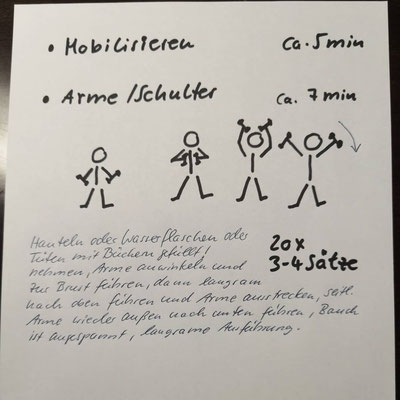 • Mobilisieren ca. 5 min
• Arme/Schulter ca. 7 min
20x
3-4 Sätze
Hanteln oder Wasserflaschen oder
Tüten mit Büchern gefüllt!
nehmen, Arme anwinkeln und
zur Brust führen, dann langsam
nach oben führen und Arme ausstrecken, seitl.
Arme wieder außen nach unten führen, Bauch
ist angespannt, langsame Ausführung.